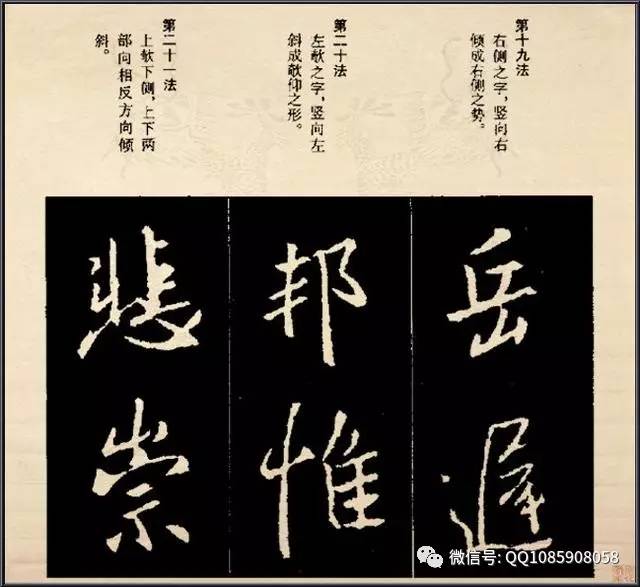 第十九法
右侧之字，竖向右
倾成右侧之势。
第二十法
左欹之字，竖向左
斜成欹仰之形。
第二十一法
上欹下侧，上下两
部向相反方向倾
斜。
岳
遲
邦
惟
悲
崇
微信号: QQ1085908058